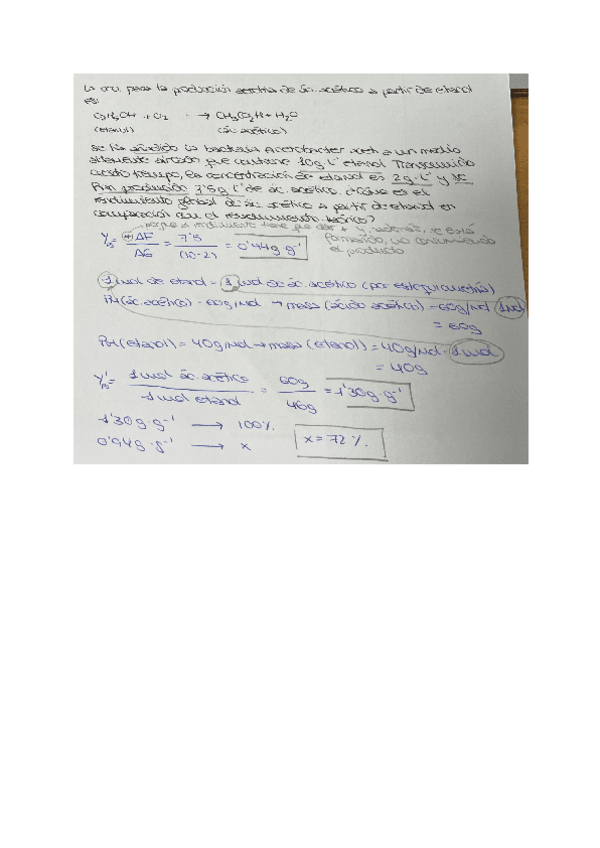 La ecu. para la producción aerobia de ác. acético a partir de etanol
es:
C2H5OH + O2 → CH3CO2H + H2O
(etanol) (ác. acético)
se ha añadido la bacteria Acetobacter aceti a un medio
aireado que contiene 10 g L⁻¹ etanol. Transcurrido
cierto tiempo, la concentración de etanol es 2 g·L⁻¹ y se
han producido 7'5 g L⁻¹ de ác. acético. ¿Cuál es el
rendimiento global de ác. acético a partir de etanol en
comparación con el rendimiento teórico?
porque el rendimiento tiene que dar + y, además, se está
formando, no consumiendo
el producto
Y = +ΔF / ΔG = 7'5 / (10-2) = 0'44 g g⁻¹
1 mol de etanol - 1 mol de ác. acético (por estequiometría)
PM (ác. acético) = 60 g/mol → masa (ácido acético) = 60 g/mol · 1 mol
= 60g
PM (etanol) = 40 g/mol → masa (etanol) = 40 g/mol · 1 mol
= 40g
Y' = 1 mol ác. acético / 1 mol etanol = 60g / 46g = 1'30 g·g⁻¹
1'30 g·g⁻¹ → 100%
0'94 g·g⁻¹ → x x = 72 %.